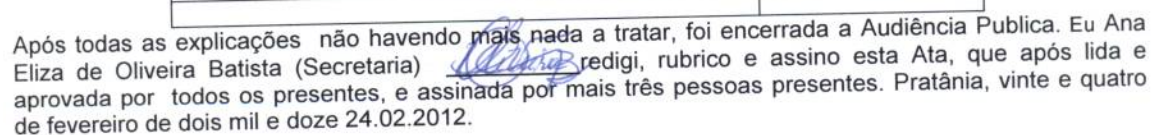 Após todas as explicações não havendo mais nada a tratar, foi encerrada a Audiência Publica. Eu Ana
Eliza de Oliveira Batista (Secretaria) redigi, rubrico e assino esta Ata, que após lida e
aprovada por todos os presentes, e assinada por mais três pessoas presentes. Pratânia, vinte e quatro
de fevereiro de dois mil e doze 24.02.2012.